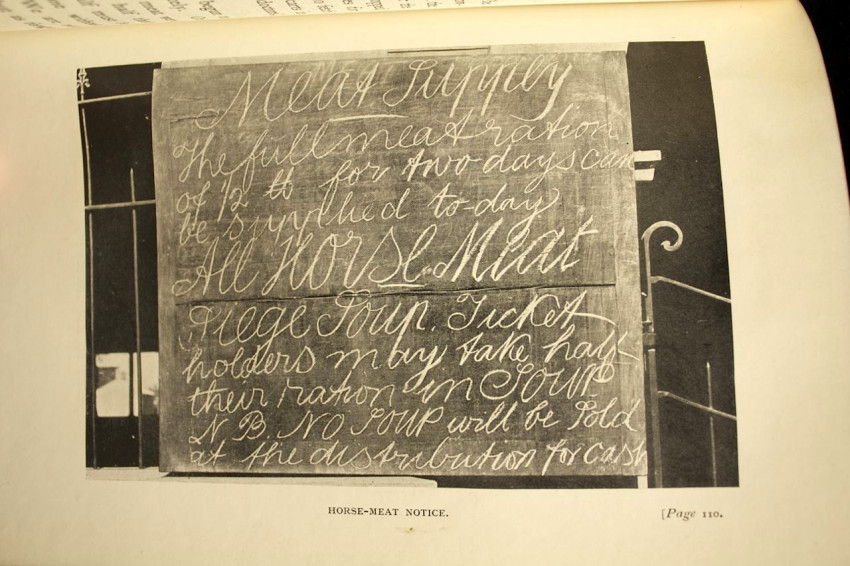 Meat Supply
The full meat ration
of 1/2 lb for two days can
be supplied to-day
All Horse Meat
Siege Soup. Ticket
holders may take half
their ration in SOUP
N.B. NO SOUP will be Sold
at the distribution for cash
HORSE-MEAT NOTICE.
[Page 110.